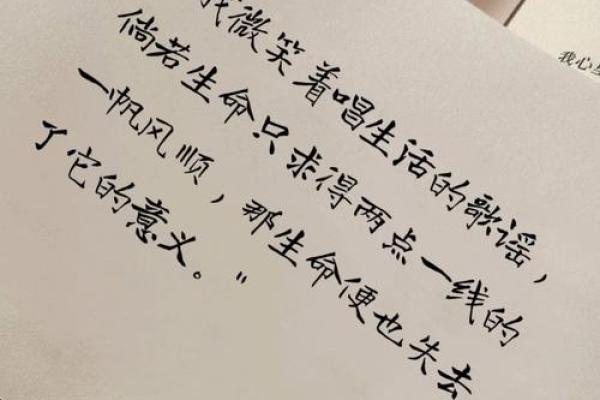 我微笑着唱生活的歌谣，
倘若生命只求得两点一线的
一帆风顺，那生命便也失去
了它的意义。”
我心里